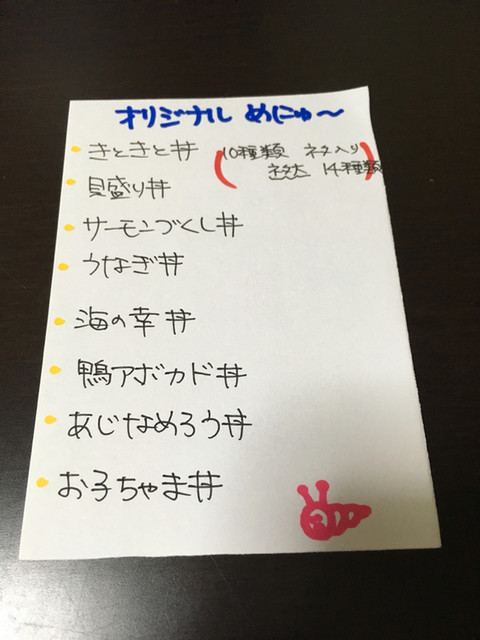 オリジナル めにゅ〜
きときと丼 (10種類 ネタ入り
14種類)
貝盛り丼
サーモンづくし丼
うなぎ丼
海の幸丼
鴨アボカド丼
あじなめろう丼
お子ちゃま丼